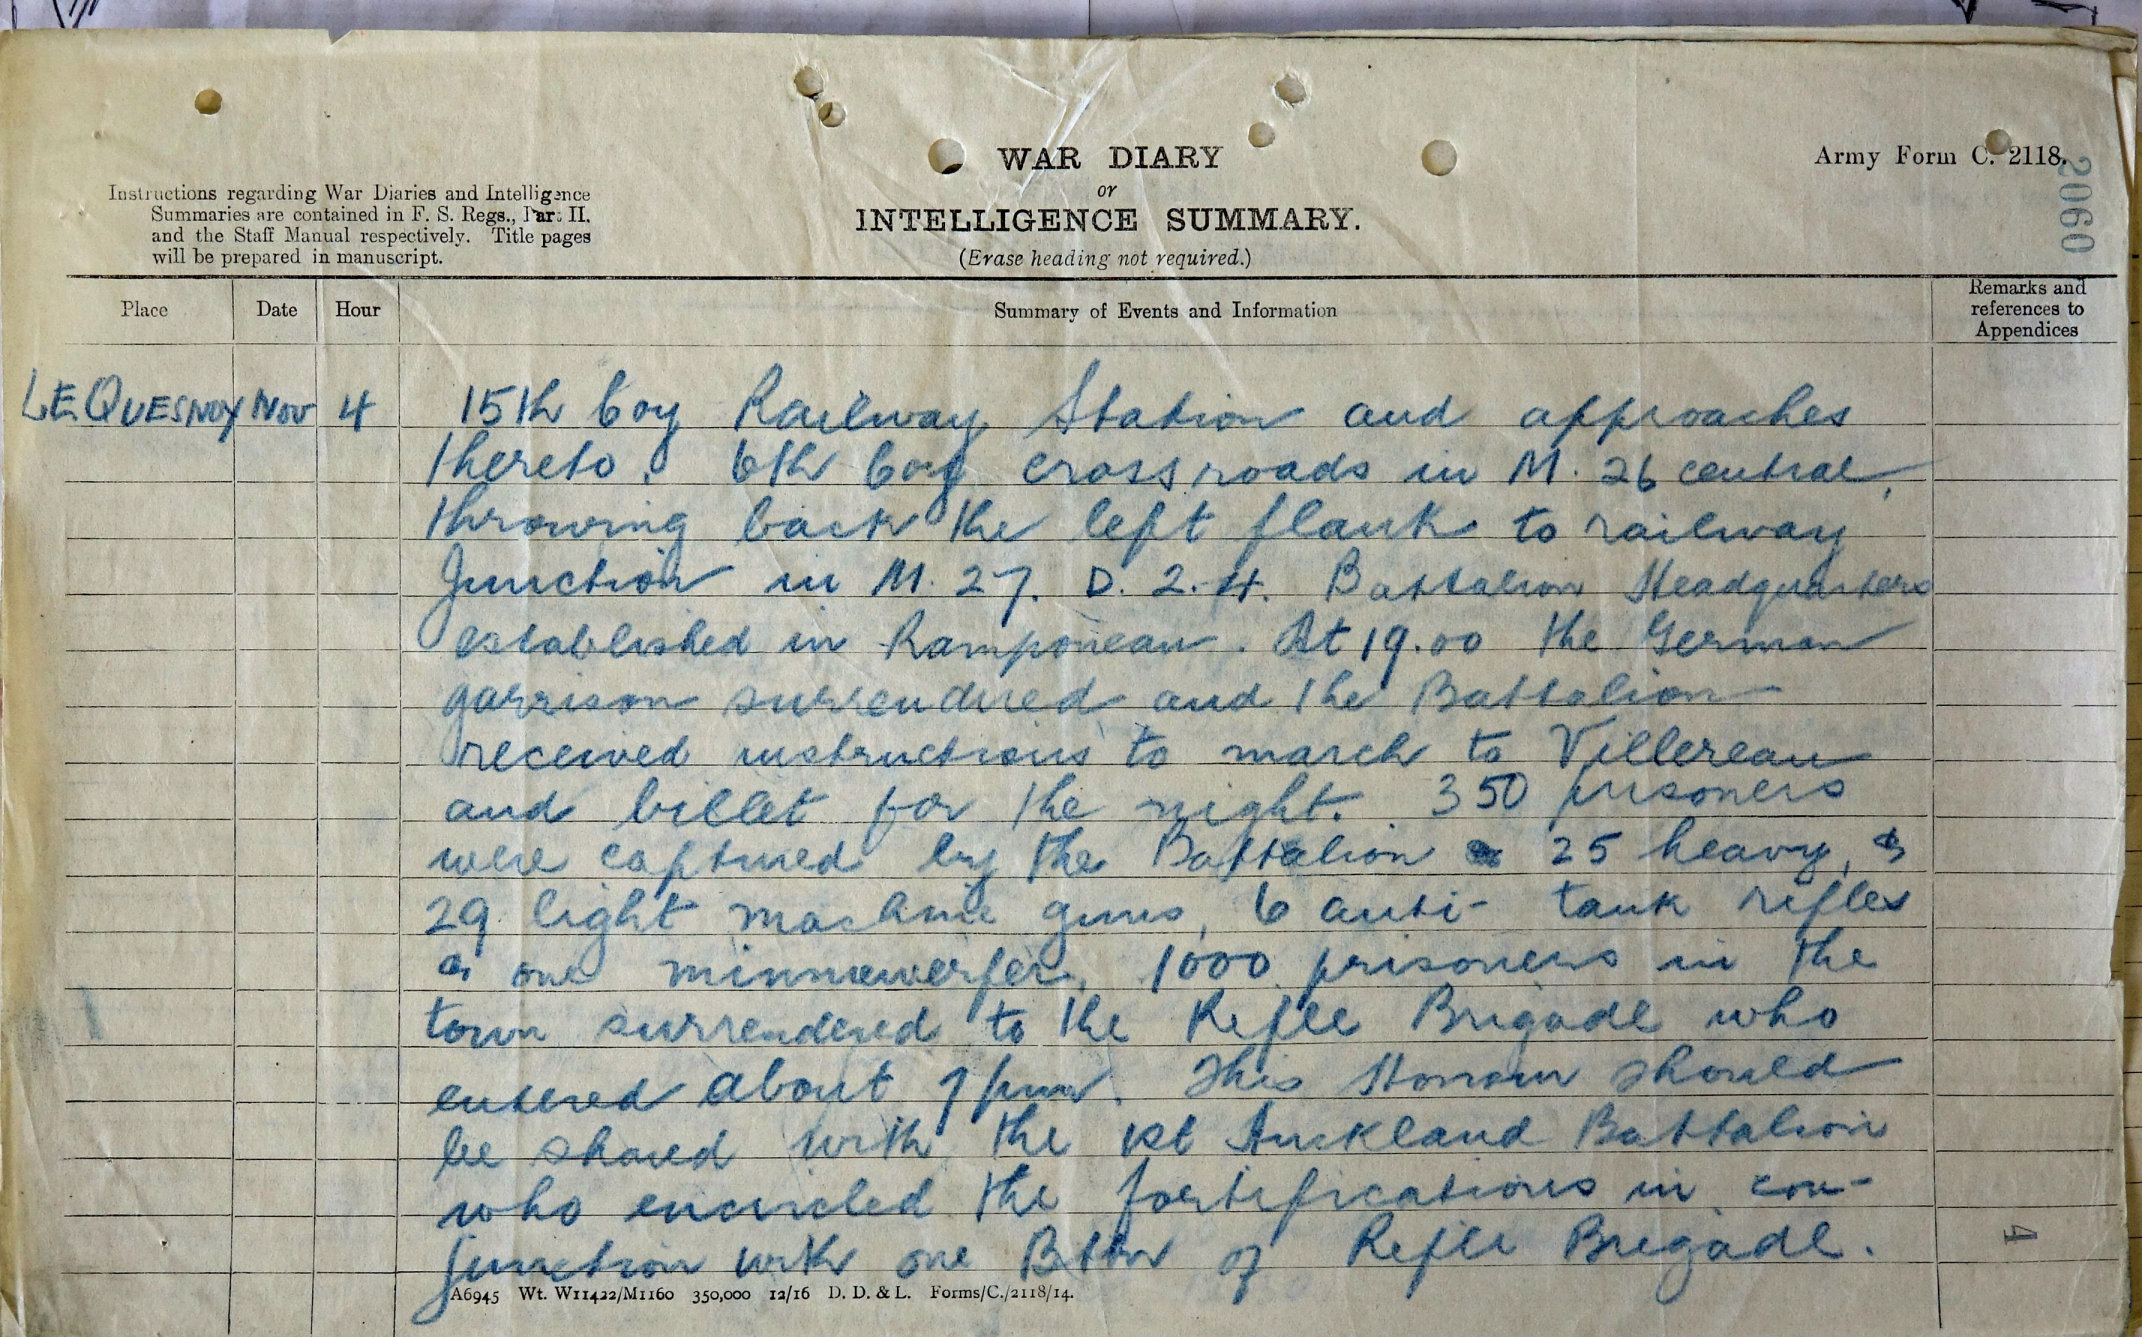 WAR DIARY
or
INTELLIGENCE SUMMARY.
(Erase heading not required.)
Army Form C. 2118.
2060
Instructions regarding War Diaries and Intelligence
Summaries are contained in F. S. Regs., Part II.
and the Staff Manual respectively. Title pages
will be prepared in manuscript.
Place Date Hour Summary of Events and Information Remarks and
references to
Appendices
LE QUESNOY Nov 4 15th Coy Railway Station and approaches
thereto. 6th Coy cross roads in M. 26 central,
throwing back the left flank to railway
Junction in M. 27. D. 2.4. Battalion Headquarters
established in Ramponeau. At 19.00 the German
garrison surrendered and the Battalion
received instructions to march to Villereau
and billet for the night. 350 prisoners
were captured by the Battalion 25 heavy, &
29 light machine guns, 6 anti- tank rifles
& one minnewerfer. 1000 prisoners in the
town surrendered to the Rifle Brigade who
entered about 7 pm. This Honour should
be shared with the 1st Auckland Battalion
who encircled the fortifications in con-
junction with one Bttn of Rifle Brigade.
4
A6945 Wt. W11422/M1160 350,000 12/16 D. D. & L. Forms/C./2118/14.